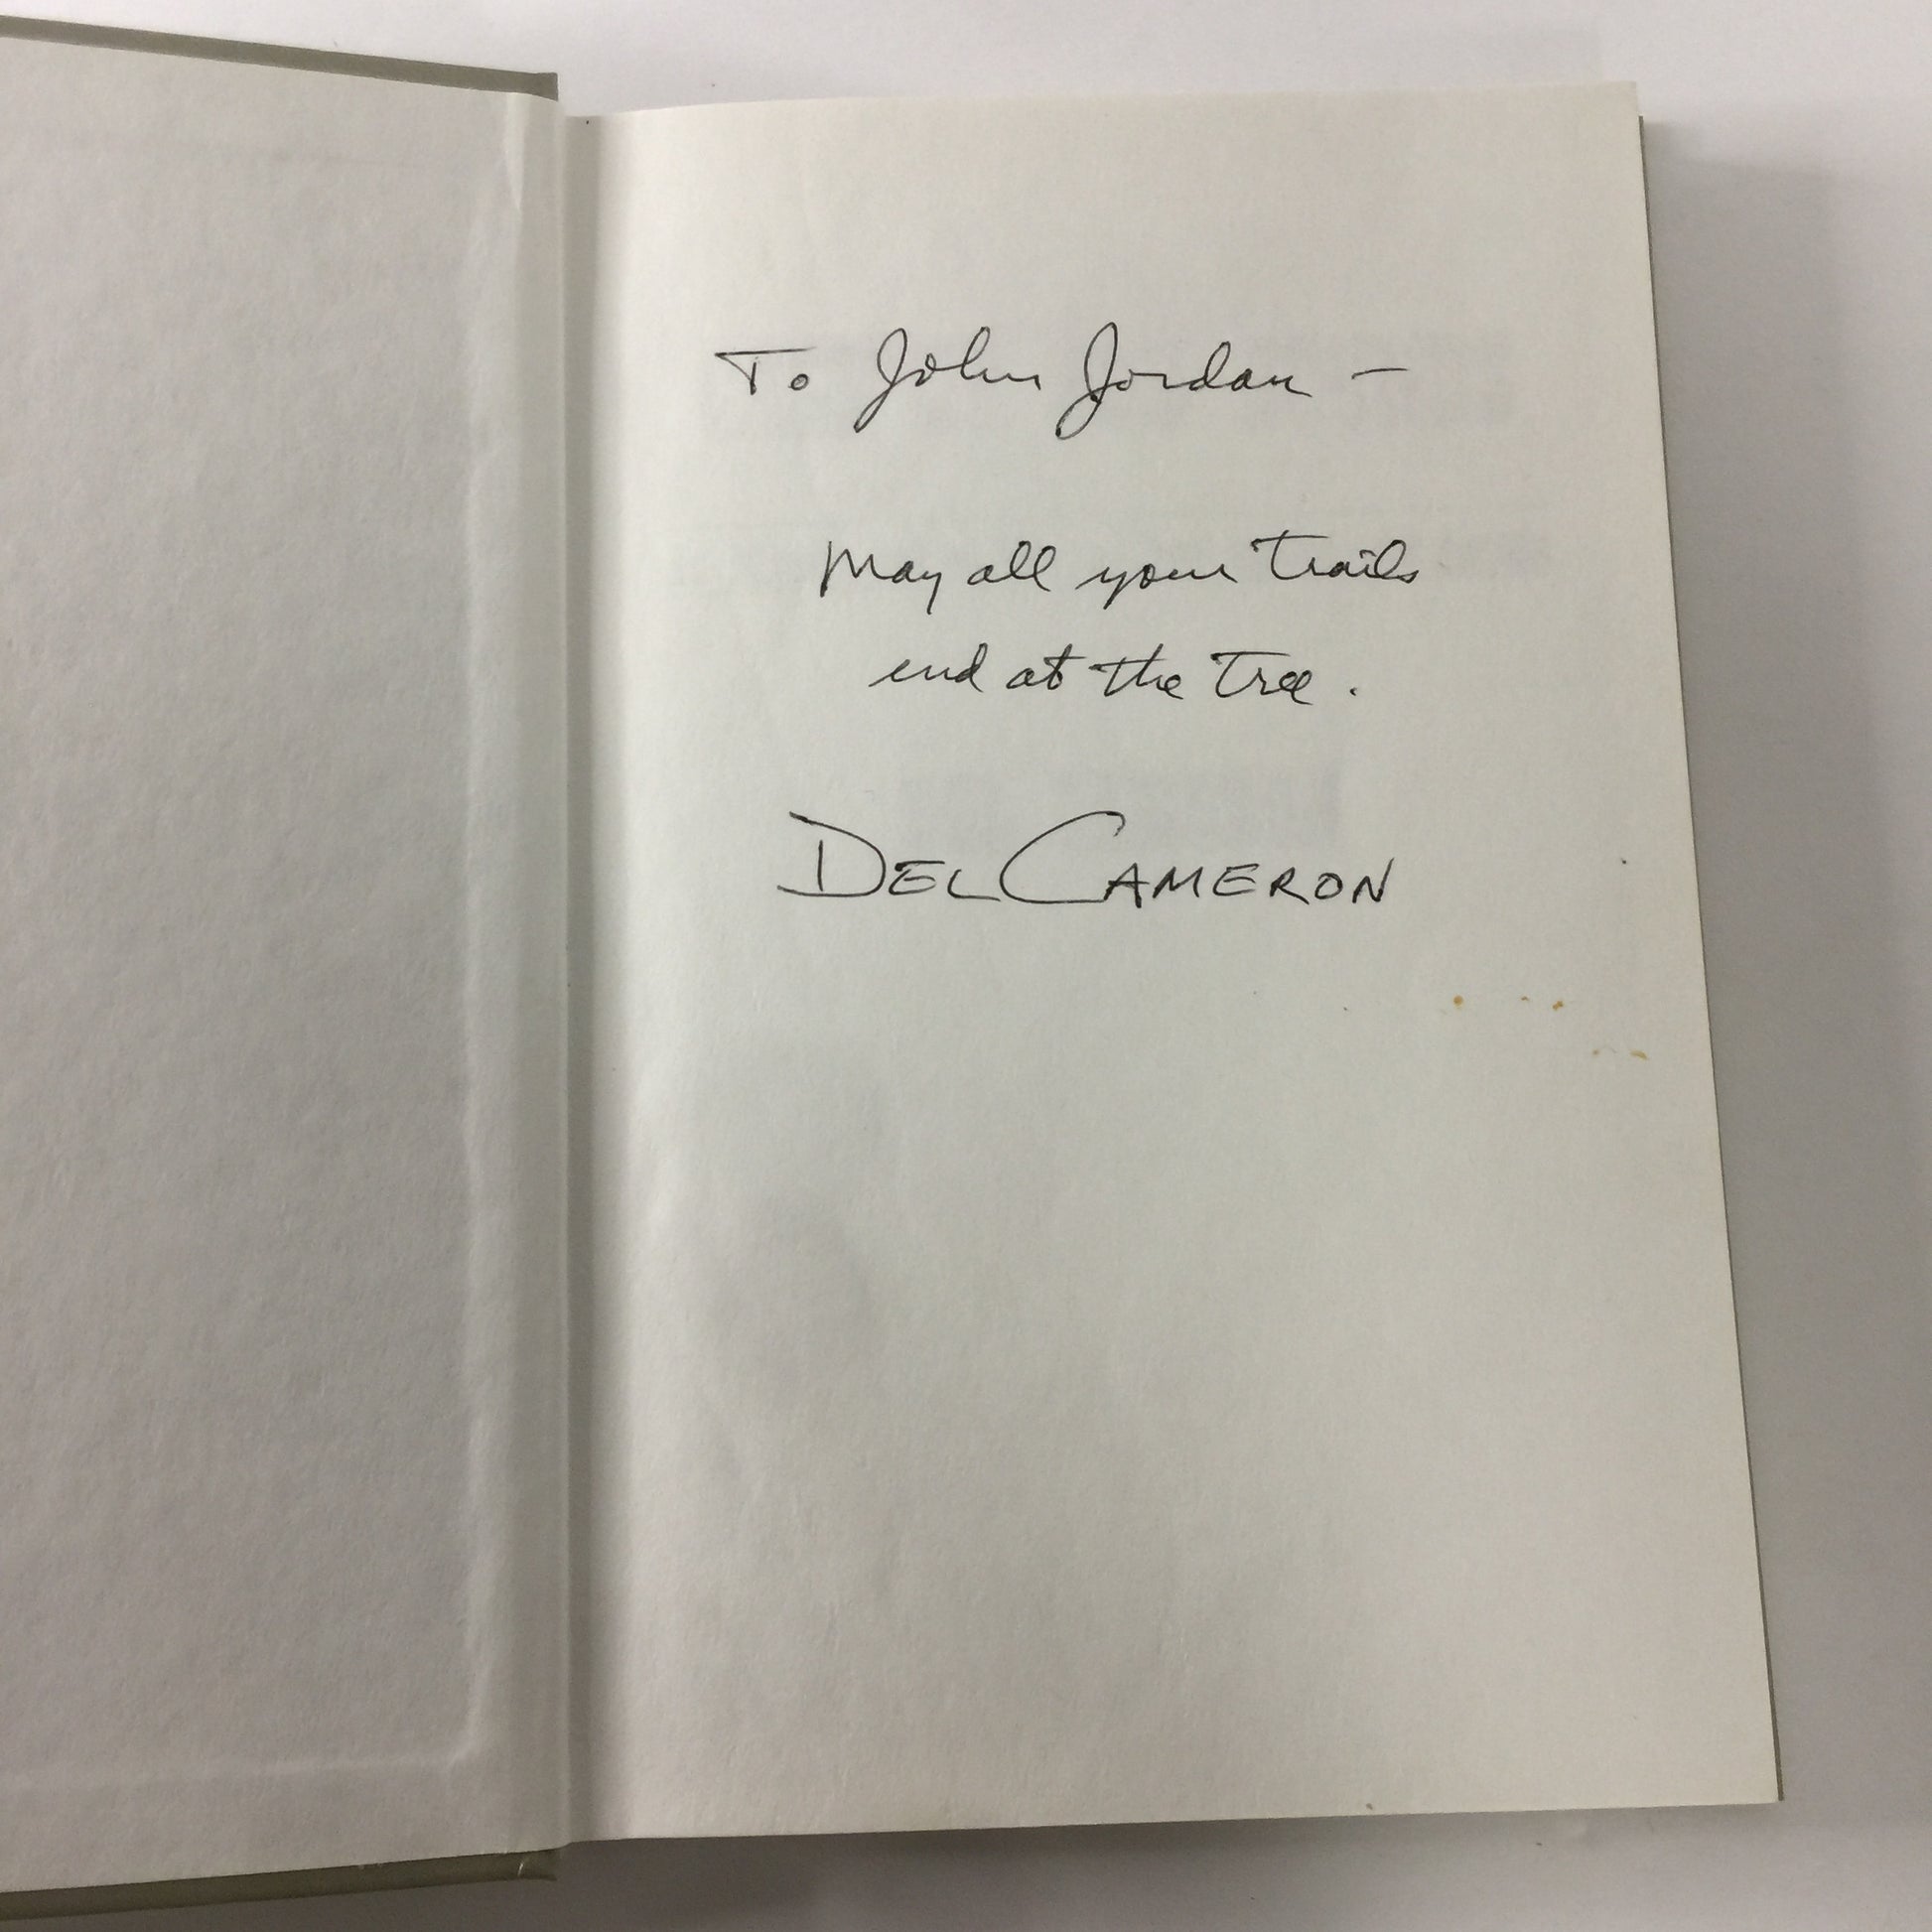 To John Jordan –
May all your trails
end at the tree.
DEL CAMERON